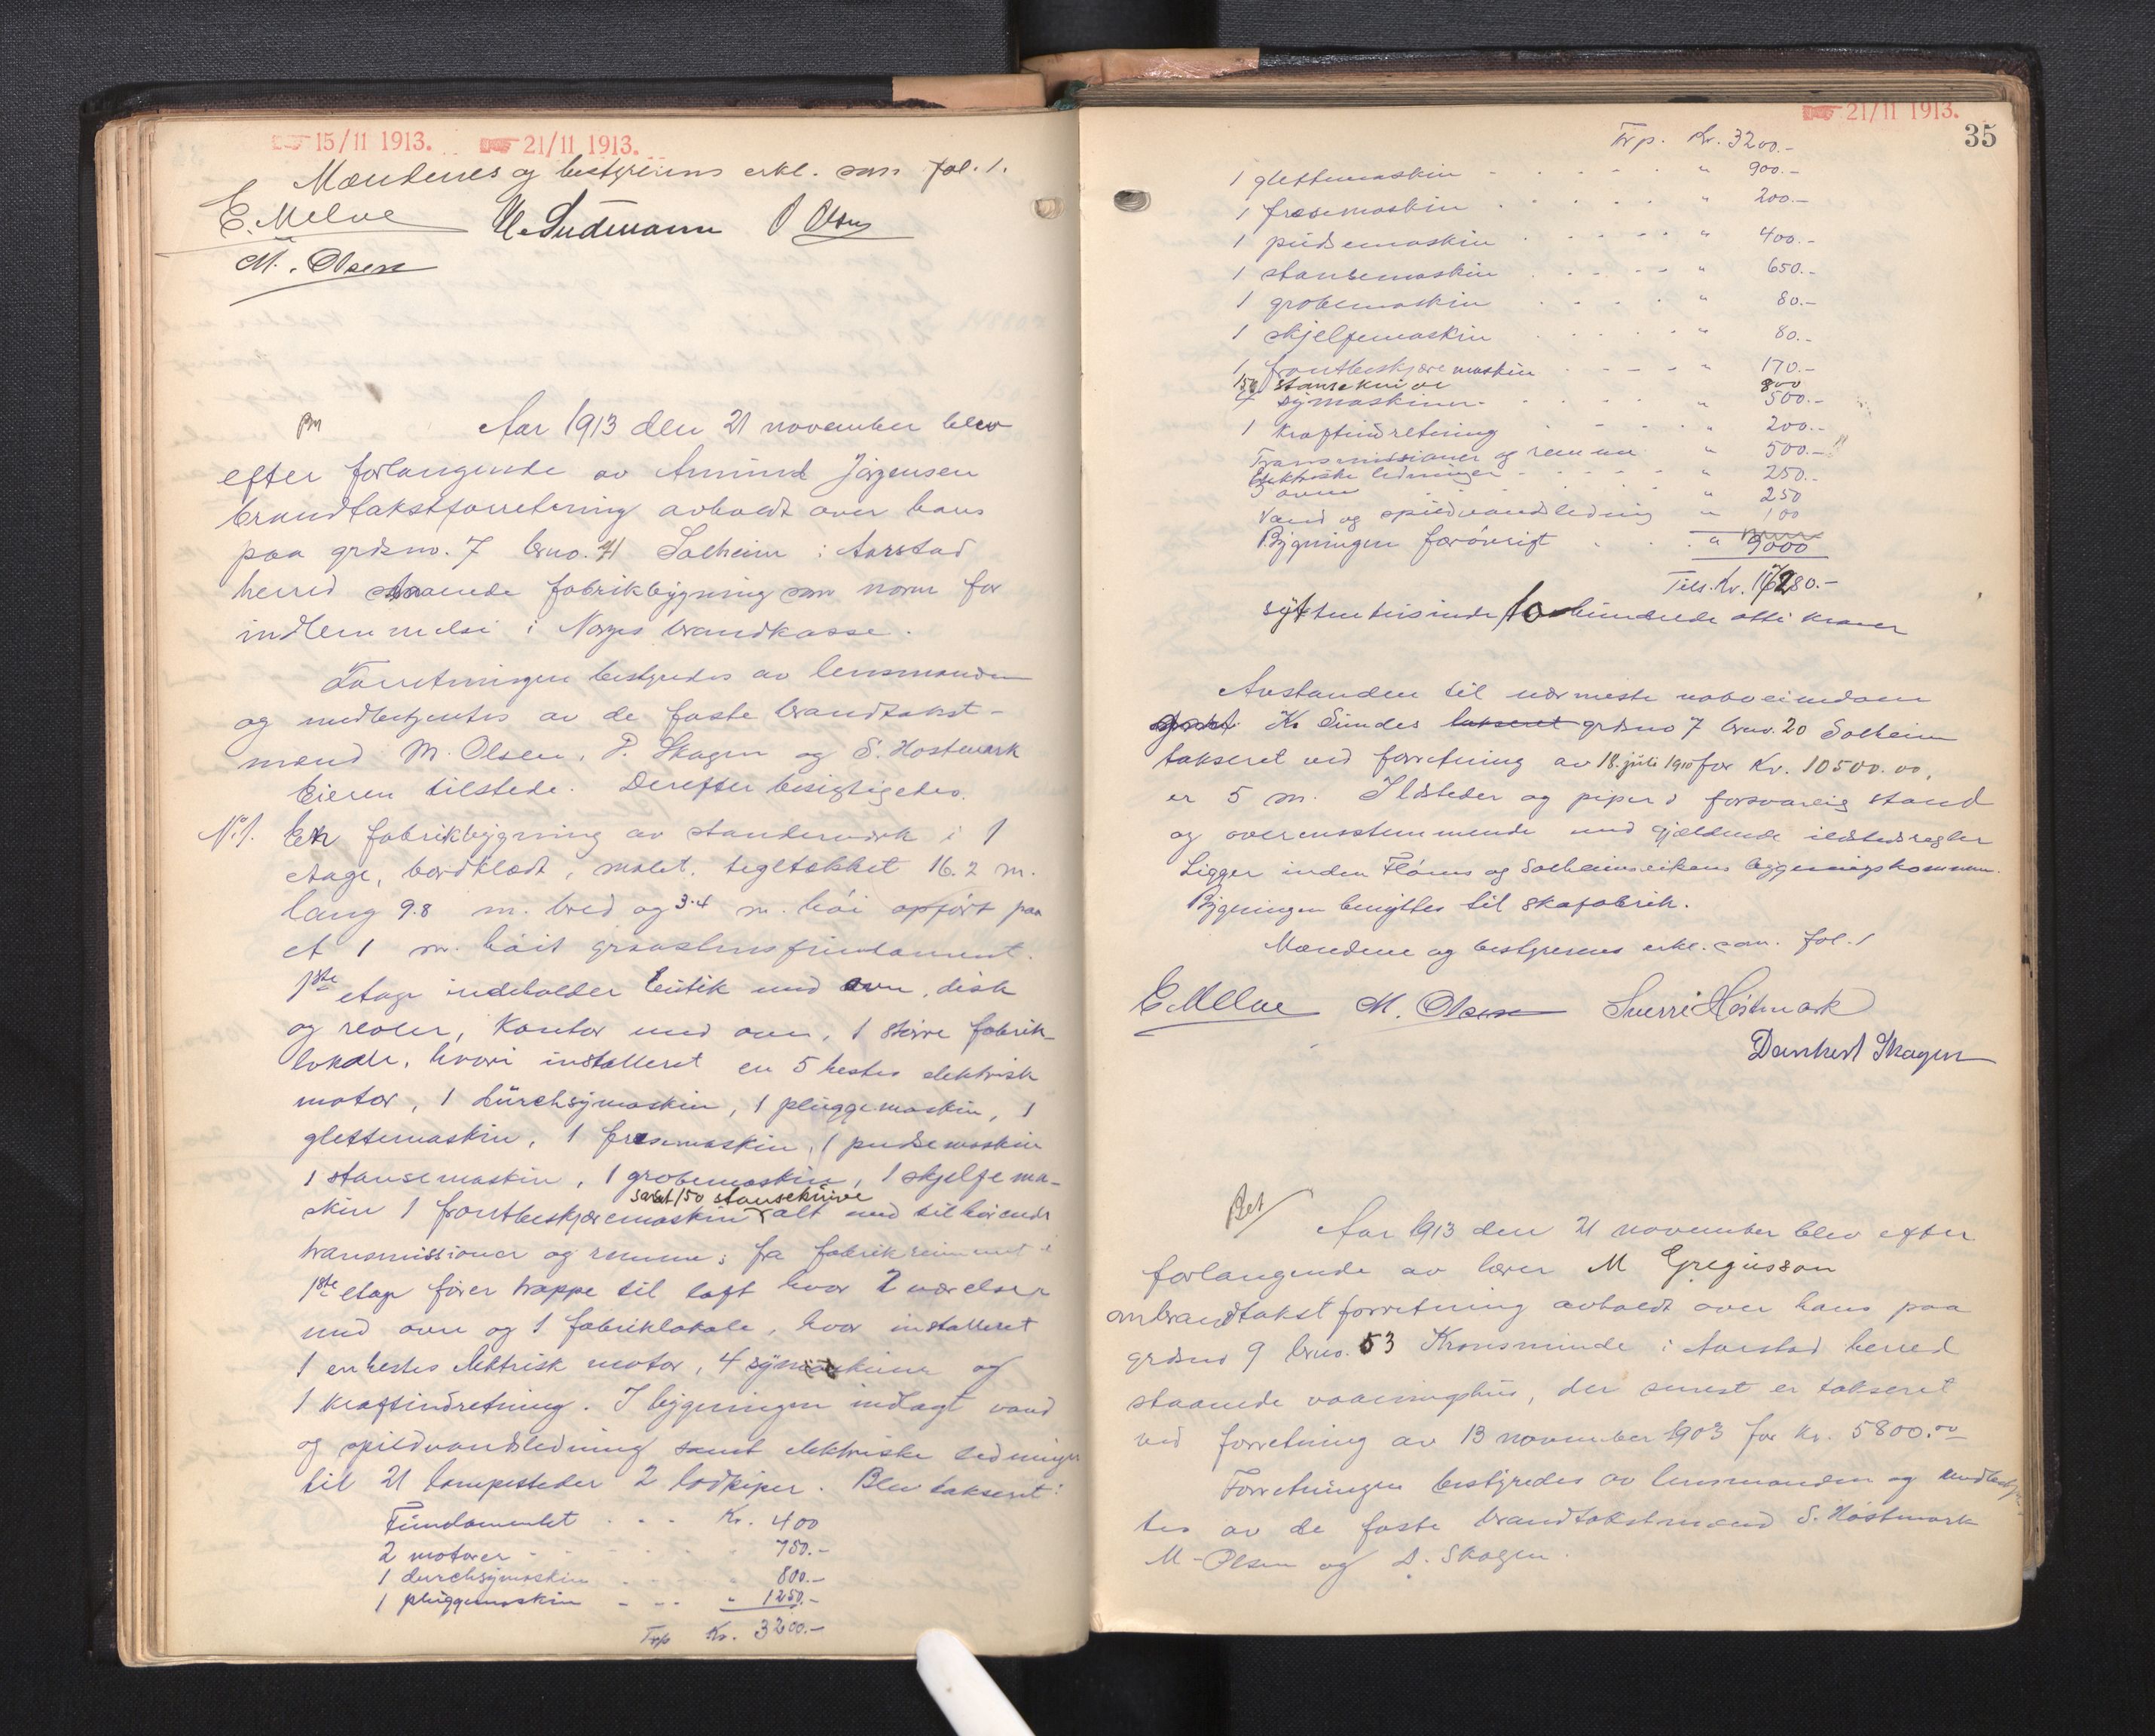 15/11 1913. 21/11 1913.
Mændenes og bestyrerens erkl. som fol. 1.
E. Melve H. Sudmann P Olsen
M. Olsen
Aar 1913 den 21 november blev
efter forlangende av Amund Jørgensen
brandtakstforretning avholdt over hans
paa grdsno. 7 brno. 41 Solheim i Aarstad
herred staaende fabrikbygning som norm for
indlemmelse i Norges brandkasse.
Forretningen bestyredes av lensmanden
og medbetjentes av de faste brandtakst-
mænd M. Olsen, P. Skagen og S. Høstmark
Eieren tilstede. Derefter besigtigedes.
No. 1. En fabrikbygning av standerverk i 1
etage, bordklædt, malet, tegltækket 16.2 m.
lang 9.8 m. bred og 3.4 m. høi opført paa
et 1 m. høit graastensfundament.
1ste etage indeholder butik med ovn, disk
og reoler, kontor med ovn, 1 større fabrik-
lokale, hvori installeret en 5 hestes elektrisk
motor, 1 durchsymaskin, 1 pluggemaskin, 1
glettemaskin, 1 fresemaskin, 1 pudsemaskin
1 stansemaskin, 1 grobemaskin, 1 skjelfema-
samt 150 stanseknive
skin 1 frontbeskjæremaskin alt med tilhørende
transmissioner og remme; fra fabrikrummet i
1ste etage fører trappe til loft hvor 2 værelser
med ovn og 1 fabriklokale, hvor installeret
1 en hestes elektrisk motor, 4 symaskiner og
1 kraftindretning. I bygningen indlagt vand
og spildvandsledning samt elektriske ledninger
til 21 lampesteder 2 lodpiper. Blev takseret:
Fundamentet . . . Kr. 400
2 motorer - - - 750.-
1 durchsymaskin . . . " 800.-
1 pluggemaskin - - - " 1250.-
Trp Kr. 3200.-
21/11 1913.
35
Trp. Kr. 3200.-
1 glettemaskin - - - " 900.-
1 fræsemaskin . . . " 200.-
1 pudsemaskin . . . " 400.-
1 stansemaskin . . . " 650.-
1 grobemaskin . . . " 80.-
1 skjelfemaskin . . . " 80.-
1 frontbeskjæremaskin - - - " 170.-
150 stanseknive 800
4 symaskiner . . . " 500.-
1 kraftindretning - - - " 200.-
Transmissioner og remme " 500.-
Elektriske ledninger - - - " 250.-
3 ovne " 250
Vand og spildvandsledning " 100
Bygningen forøvrigt . . . " 9000
Tils. Kr. 17280.-
sytten tusinde to hundrede otti kroner
Avstanden til nærmeste naboeiendom
Kr Sundes takseret grdsno 7 brno. 20 Solheim
takseret ved forretning av 18. juli 1910 for Kr. 10500.00,
er 5 m. Ildsteder og piper i forsvarlig stand
og overensstemmende med gjældende ildstedsregler
Ligger inden Fløens og Solheimsvikens bygningskommun.
Bygningen benyttes til skofabrik.
Mændene og bestyrerens erkl. som. fol. 1
E. Melve M. Olsen Sverre Høstmark
Dankert Skagen
Aar 1913 den 21 november blev efter
forlangende av lærer M Gregusson
ombrandtakstforretning avholdt over hans paa
grdsno 9 brno. 53 Kronsminde i Aarstad herred
staaende vaaningshus, der senest er takseret
ved forretning av 13 november 1903 for Kr. 5800.00
Forretningen bestyredes av lensmanden og medbetjen-
tes av de faste brandtakstmænd S. Høstmark
M. Olsen og D. Skagen.